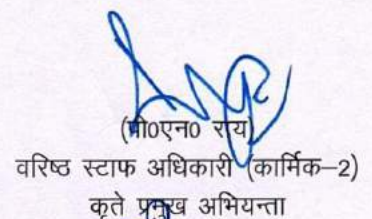 (पी०एन० राय)
वरिष्ठ स्टाफ अधिकारी (कार्मिक–2)
कृते प्रमुख अभियन्ता